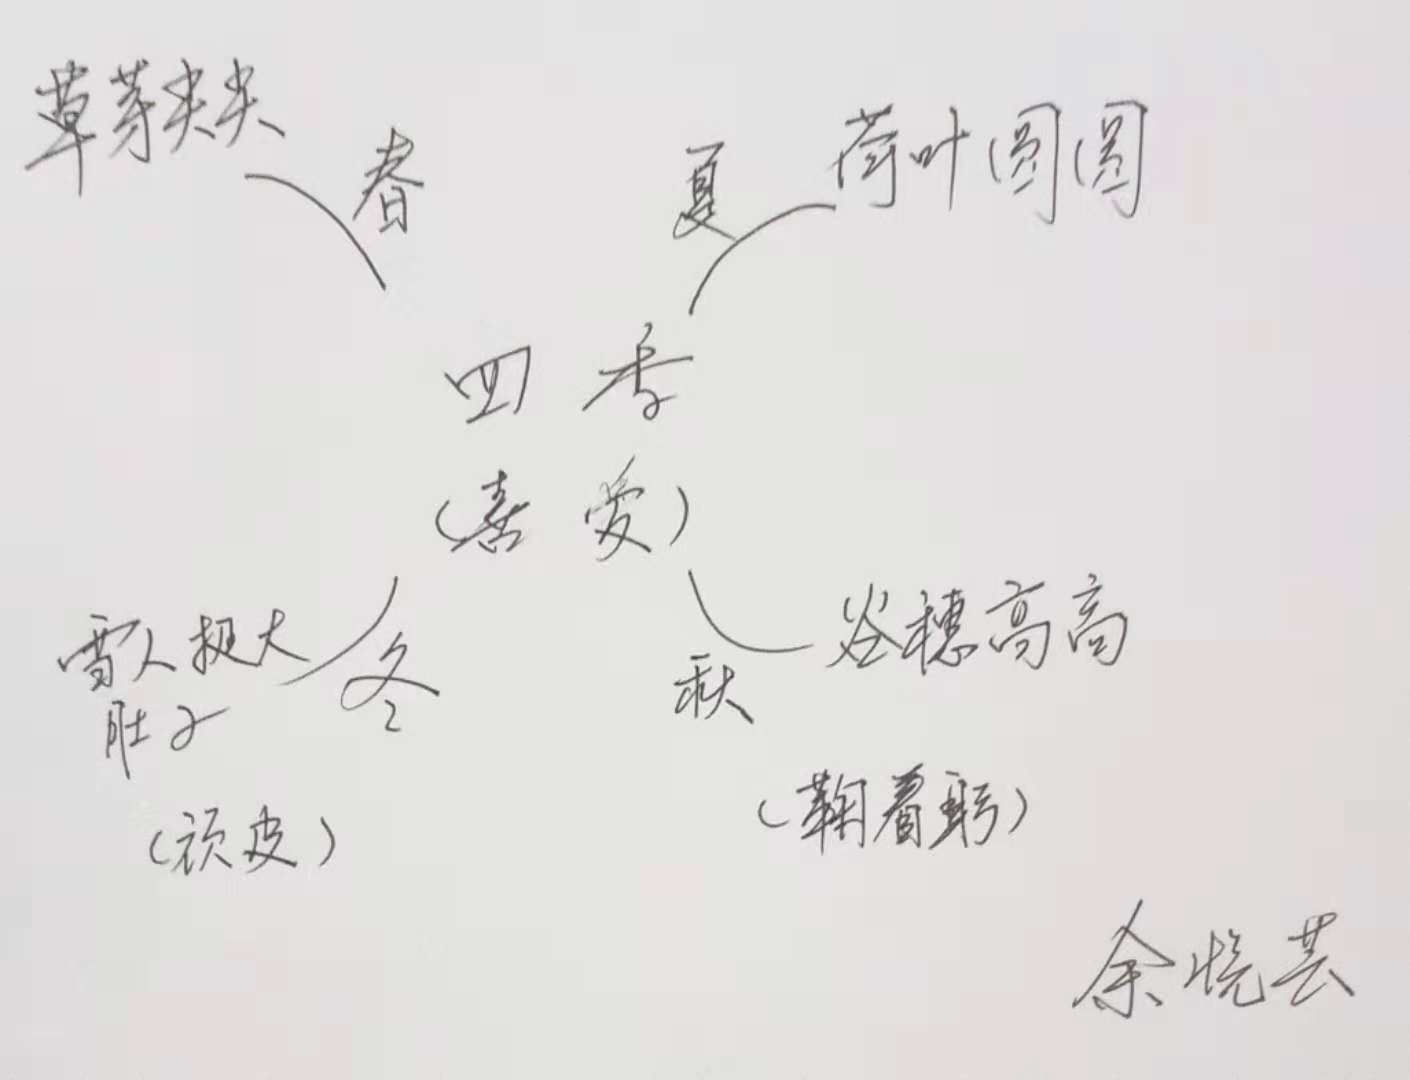 草芽尖尖
春
夏
荷叶圆圆
四季
(喜爱)
雪人挺大
肚子
冬
(顽皮)
秋
谷穗高高
(鞠着躬)
余悦芸